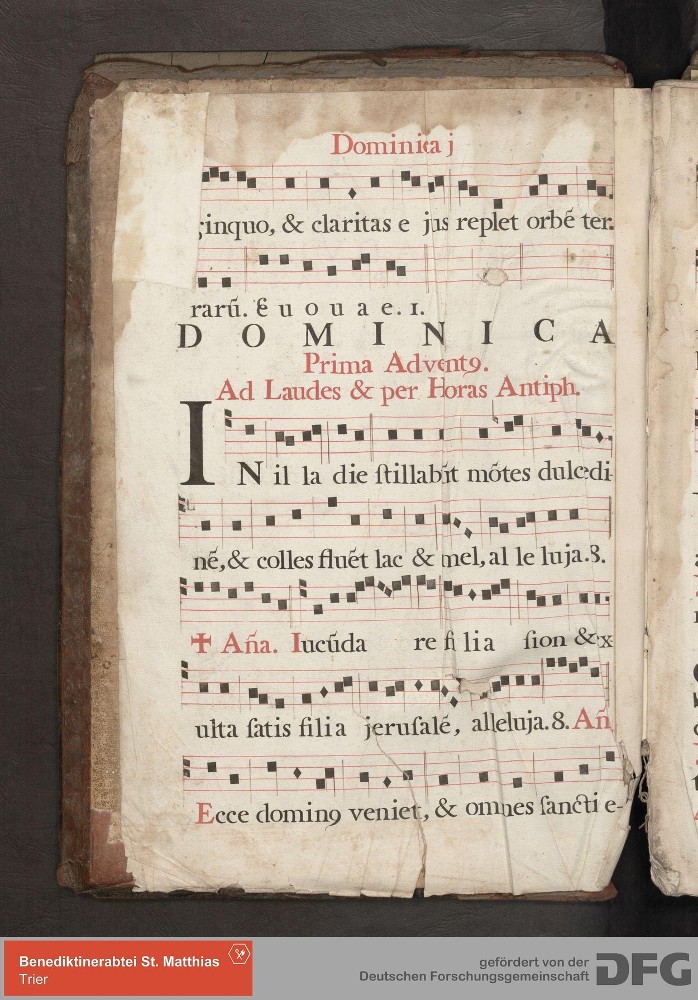 Dominica j
ginquo, & claritas e jus replet orbē ter.
rarū. E u o u a e. 1.
DOMINICA
Prima Adventꝰ.
Ad Laudes & per Horas Antiph.
IN il la die ſtillabūt mōtes dulcedi-
nē, & colles fluēt lac & mel, al le luja. 8.
✠ Aña. Iucūda re fi lia ſion & ex
ulta ſatis filia jeruſalē, alleluja. 8. Añ
Ecce dominꝰ veniet, & omnes ſancti e-
Benediktinerabtei St. Matthias
Trier
gefördert von der
Deutschen Forschungsgemeinschaft
DFG